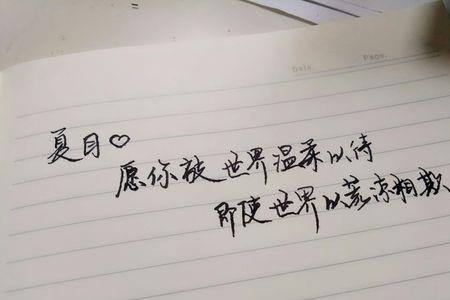 Date. Page.
夏目♡
愿你被世界温柔以待
即使世界以荒凉相欺